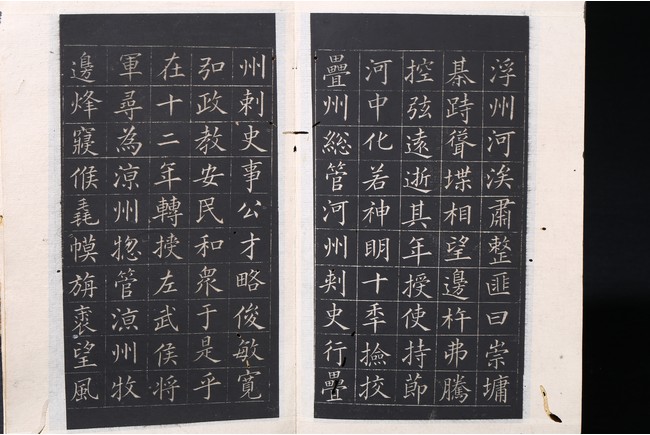 浮州河涘肅整匪曰崇墉
棊跱聳堞相望邊柝弗騰
控弦遠逝其年授使持節
河中化若神明十季撿挍
疊州総管河州刾史行疊
州刾史事公才略俊敏寛
弘政教安民和衆于是乎
在十二年轉授左武侯將
軍尋為凉州惣管凉州牧
邊烽寢候毳幙旃裘望風